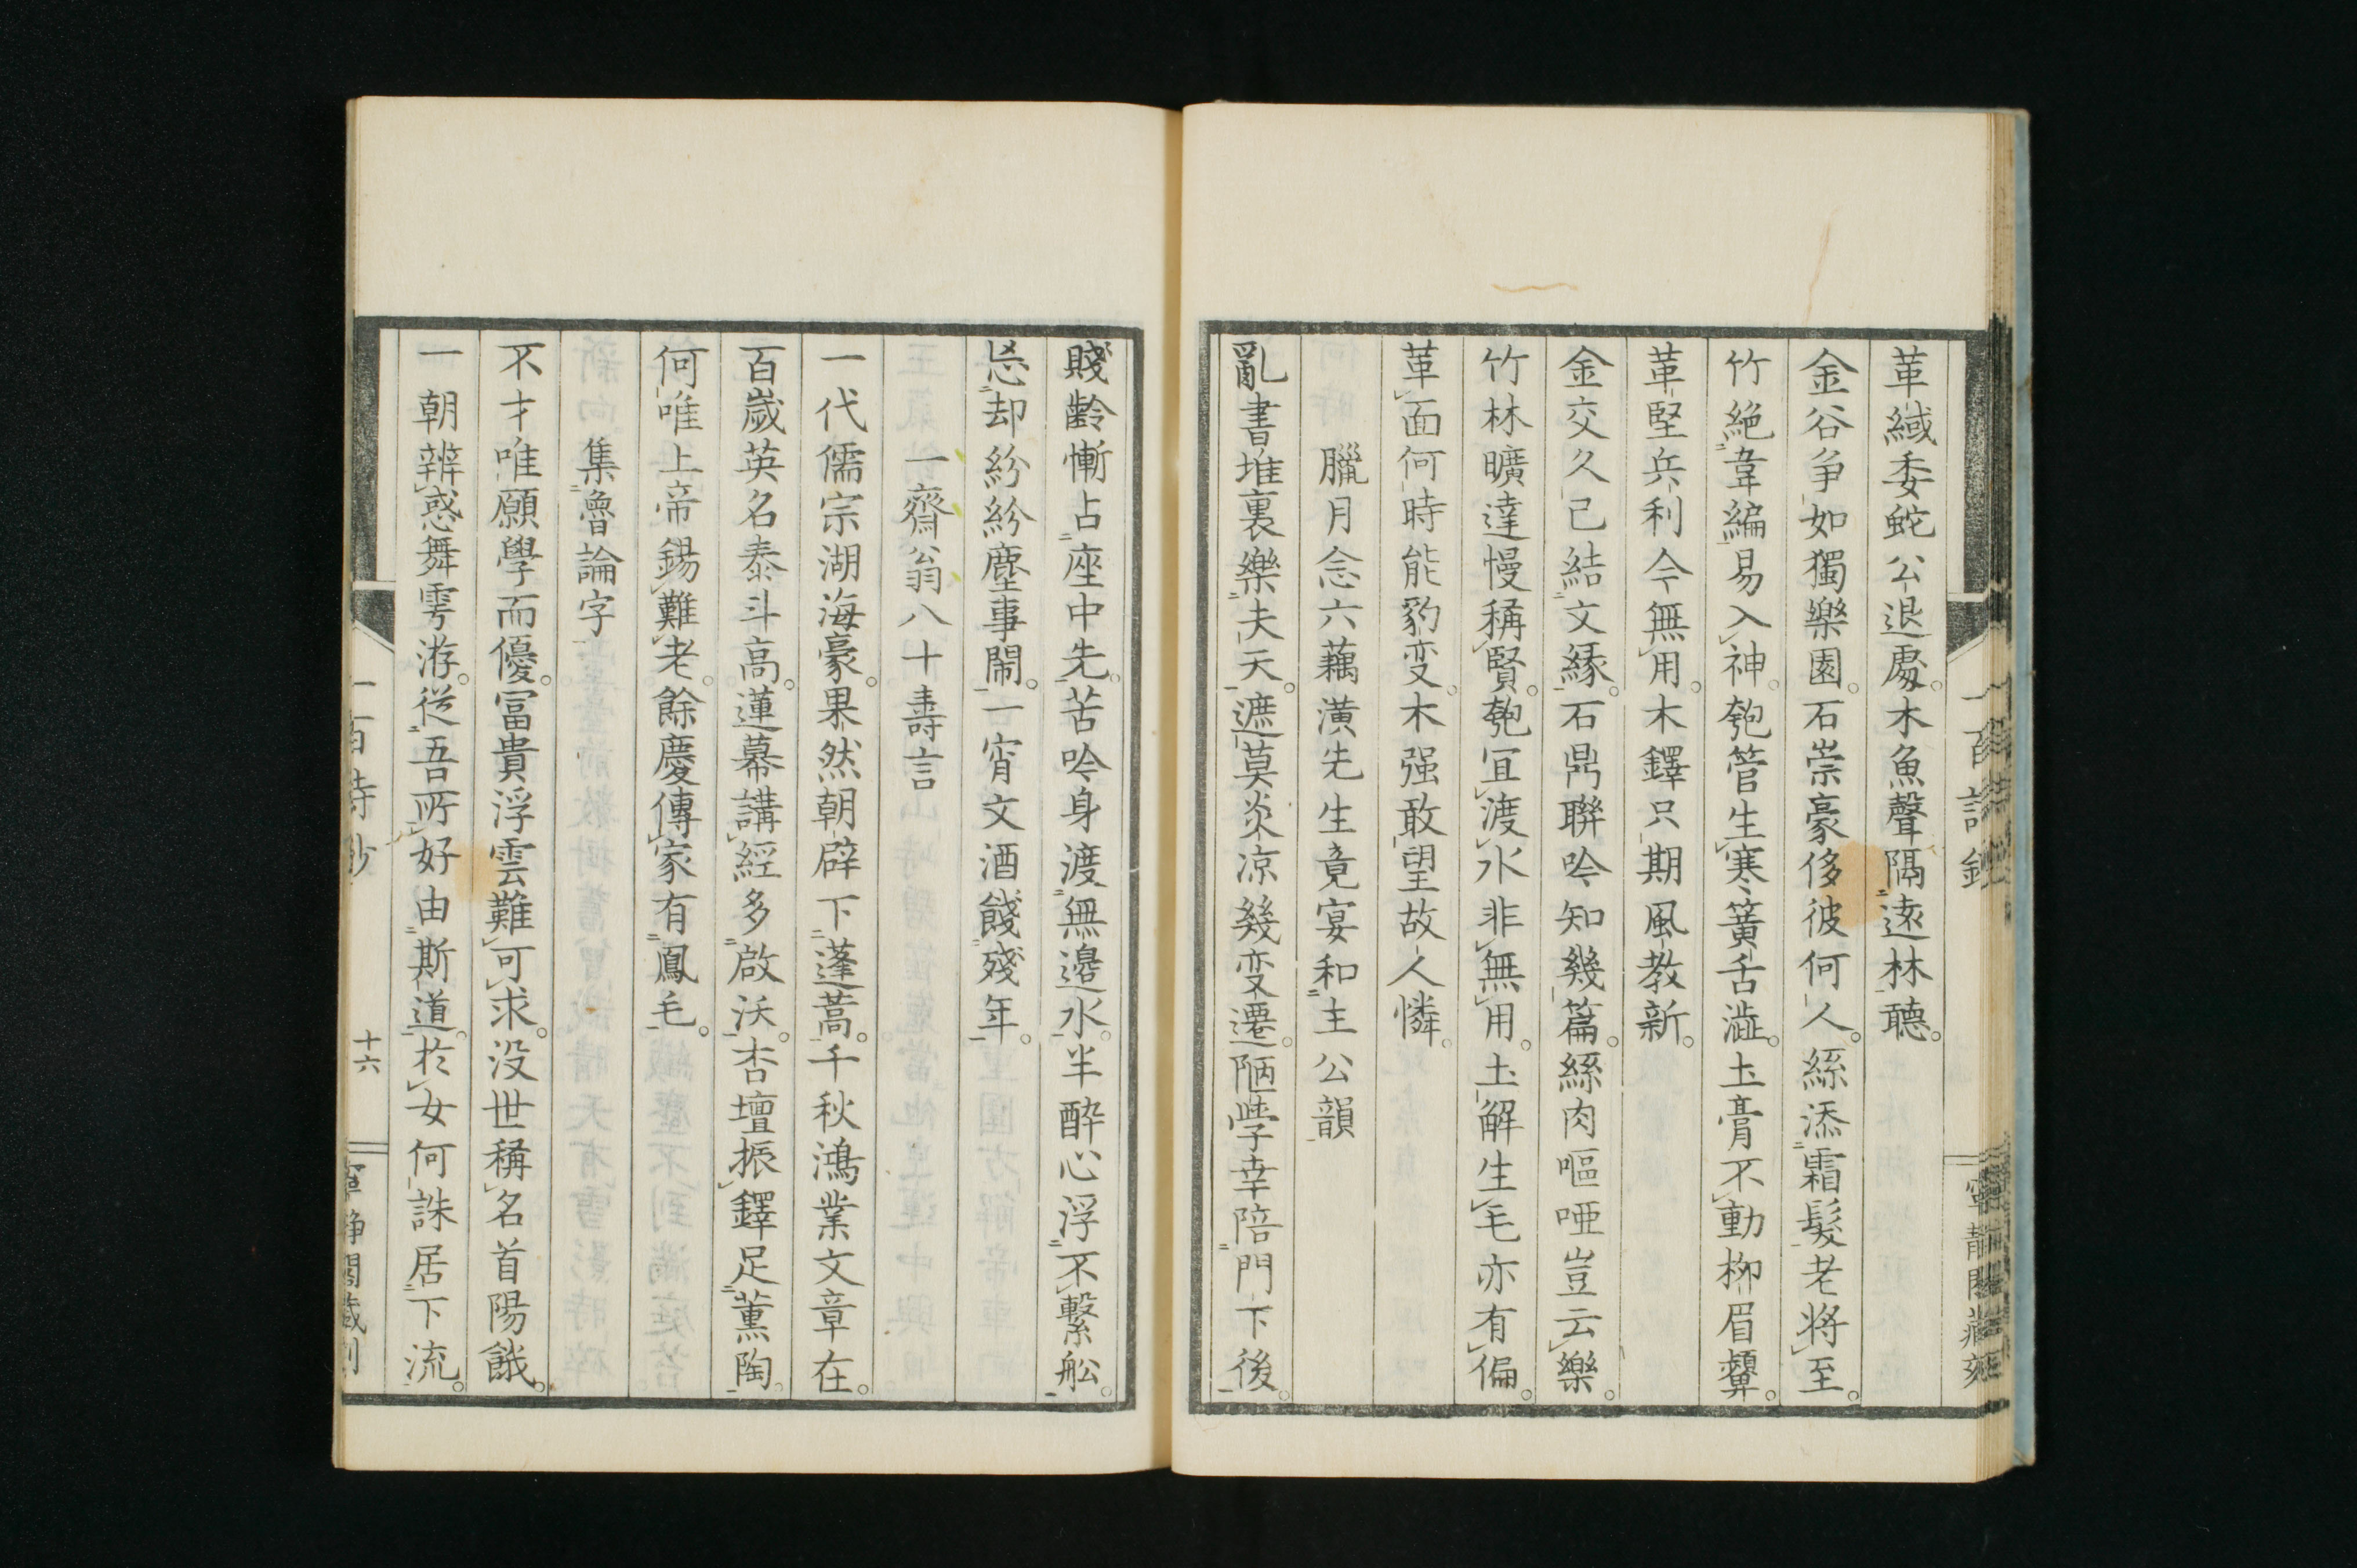 革緘委蛇公退處木魚聲隔遠林聽
金谷争如獨樂園石崇豪侈彼何人絲添霜髮老將至
竹絶韋編易入神匏管生寒簧舌澁土膏不動柳眉顰
革堅兵利今無用木鐸只期風教新
金交久已結文縁石鼎聯吟知幾篇絲肉嘔唖豈云樂
竹林曠達慢稱賢匏宜渡水非無用土解生毛亦有偏
革面何時能豹変木强敢望故人憐
臘月念六藕潢先生竟宴和主公韻
亂書堆裏樂夫天遮莫炎凉幾変遷陋學幸陪門下後
賤齡慚占座中先苦吟身渡無邊水半酔心浮不繋舩
忘却紛紛塵事閙一宵文酒餞殘年
一齋翁八十壽言
一代儒宗湖海豪果然朝辟下蓬蒿千秋鴻業文章在
百歳英名泰斗高蓮幕講經多啟沃杏壇振鐸足薫陶
何唯上帝錫難老餘慶傳家有鳳毛
集魯論字
不才唯願學而優冨貴浮雲難可求没世稱名首陽餓
一朝辨惑舞雩游從吾所好由斯道於女何誅居下流
十六